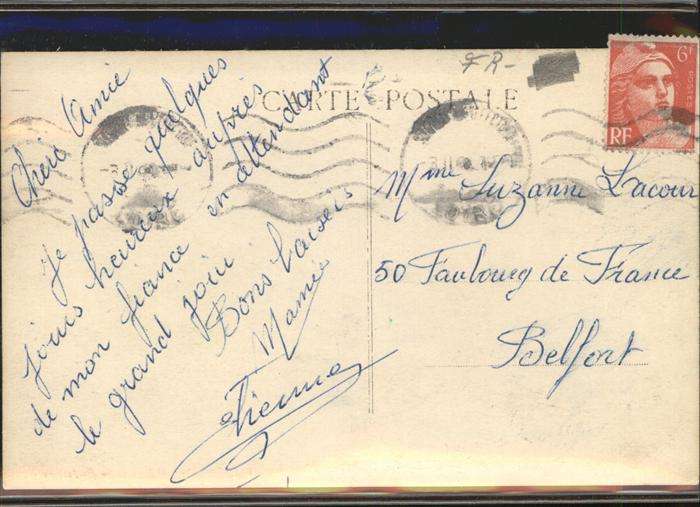 FR-
CARTE POSTALE
6F
RF
Chère Amie
Je passe quelques
jours heureux auprès
de mon fiancé en attendant
le grand jour.
Bons baisers
Mamie
Etienne
Mme Suzanne Lacour
50 Faubourg de France
Belfort